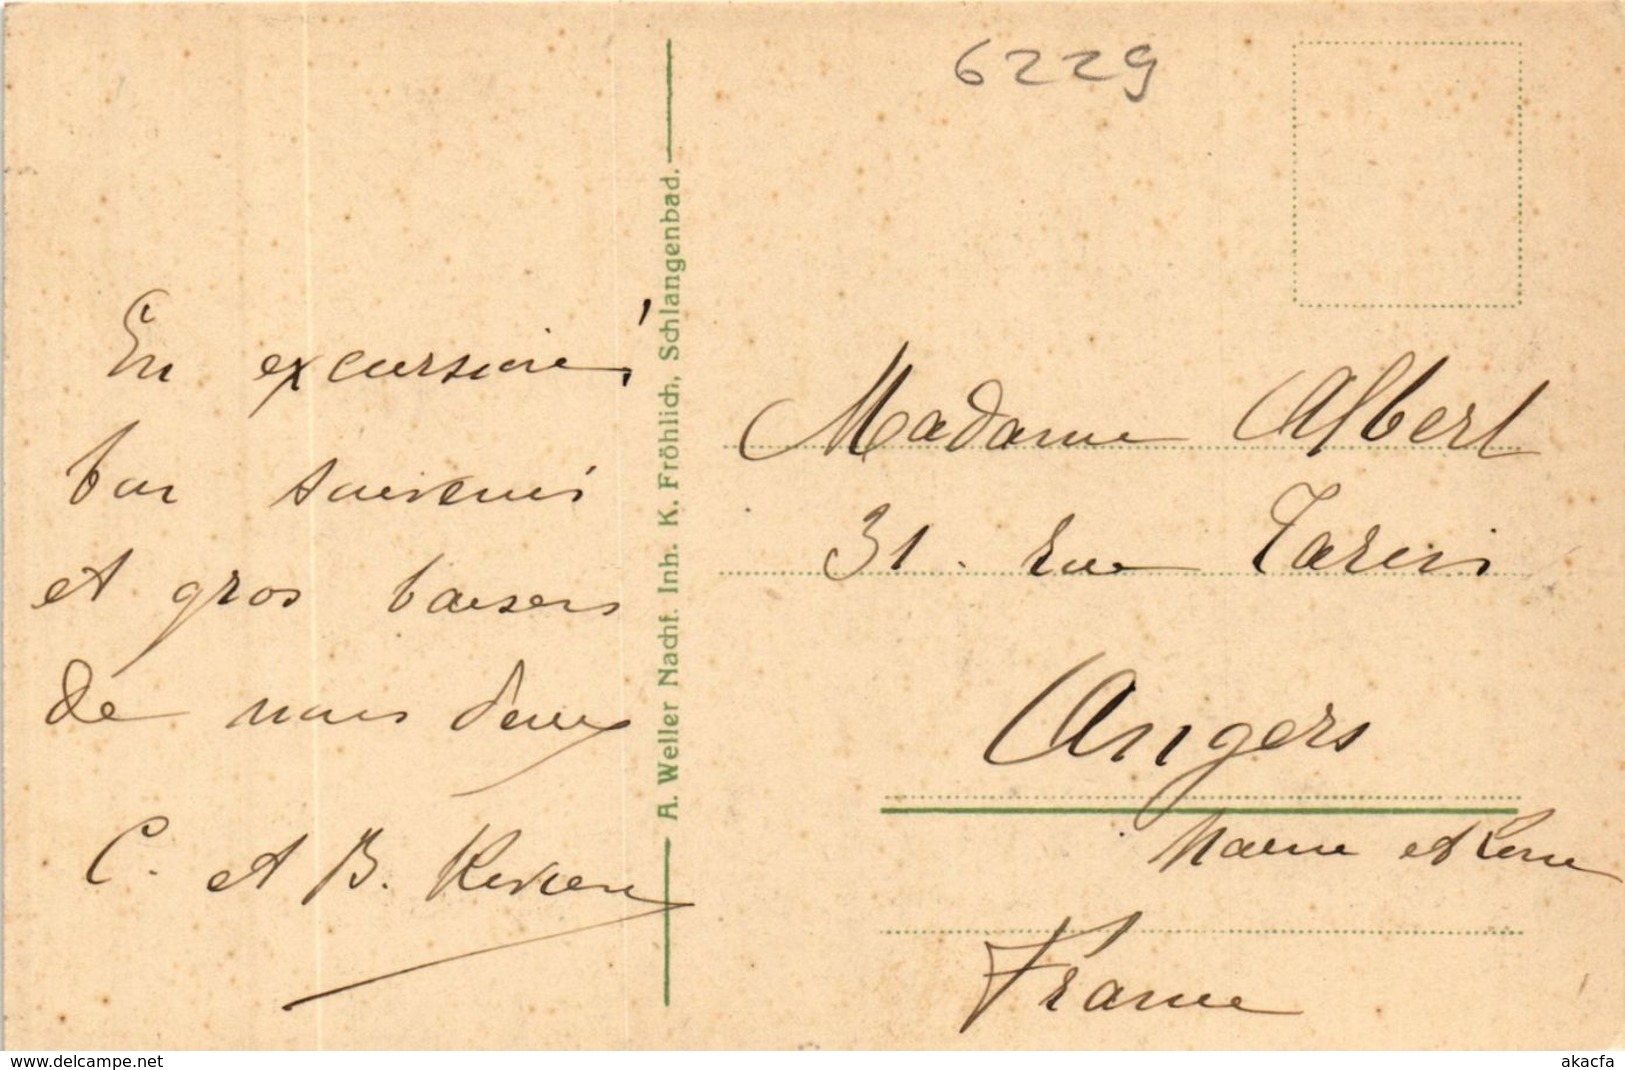 En excursion
bon souvenir
et gros baisers
de nous deux
C. et B.
A. Weller Nachf. Inh. K. Fröhlich, Schlangenbad.
6229
Madame Albert
31. rue Tarin
Angers
Maine et Loire
France
www.delcampe.net
akacfa